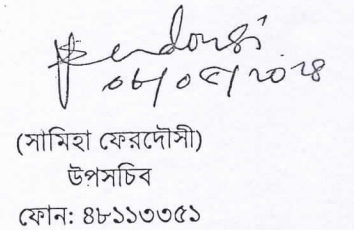 Ferdousi
০৬/০৫/২০২৪
(সামিহা ফেরদৌসী)
উপসচিব
ফোন: ৪৮১১৩৩৫১